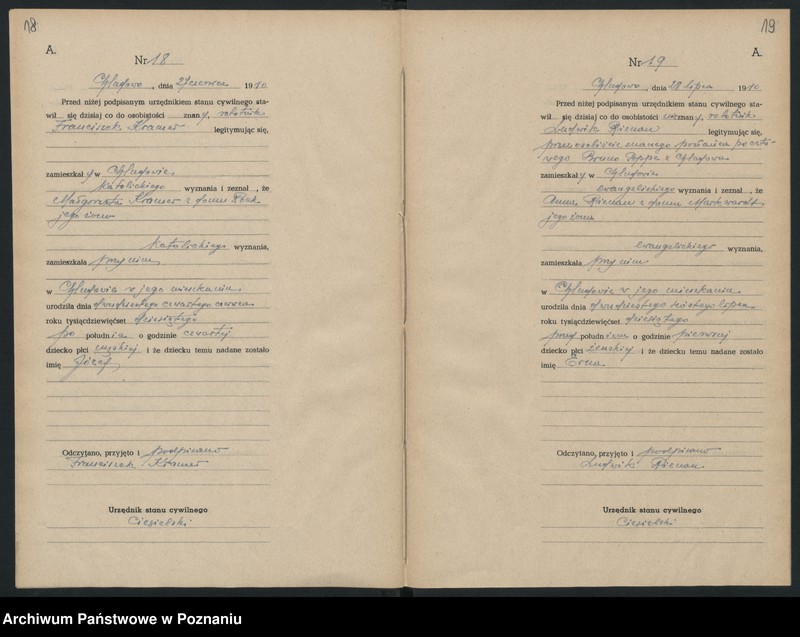 18
A.
Nr 18
, dnia 27 czerwca 1910
Przed niżej podpisanym urzędnikiem stanu cywilnego sta-
wił się dzisiaj co do osobistości znany, robotnik
Franciszek Kramer legitymując się,
zamieszkały w
katolickiego wyznania i zeznał , że
Małgorzata Kramer z domu
jego żona
katolickiego wyznania,
zamieszkała przy nim
w w jego mieszkaniu
urodziła dnia dwudziestego czwartego czerwca
roku tysiącdziewięćset dziesiątego
po południu o godzinie czwartej
dziecko płci męskiej i że dziecku temu nadane zostało
imię Józef
Odczytano, przyjęto i podpisano
Franciszek Kramer
Urzędnik stanu cywilnego
Ciesielski
19
A.
Nr 19
, dnia 28 lipca 1910
Przed niżej podpisanym urzędnikiem stanu cywilnego sta-
wił się dzisiaj co do osobistości nieznany, robotnik
Ludwik legitymując się,
przez osobiście znanego poczto-
wego Bruno z
zamieszkały w
ewangelickiego wyznania i zeznał , że
Anna z domu Markwardt
jego żona
ewangelickiego wyznania,
zamieszkała przy nim
w w jego mieszkaniu
urodziła dnia dwudziestego szóstego lipca
roku tysiącdziewięćset dziesiątego
przed południem o godzinie pierwszej
dziecko płci żeńskiej i że dziecku temu nadane zostało
imię Erna
Odczytano, przyjęto i podpisano
Ludwik
Urzędnik stanu cywilnego
Ciesielski
Archiwum Państwowe w Poznaniu